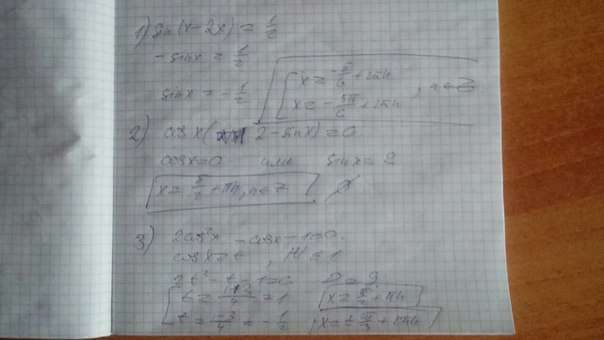 1) sin(x-2x) = 1/2
-sinx = 1/2
sinx = -1/2 [ x = -π/6 + 2πn
x = -5π/6 + 2πn , n∈Z
2) cosx( 2-sinx)=0
cosx=0 или sinx=2
x = π/2 + πn, n∈Z ∅
3) 2cos²x - cosx - 1=0
cosx=t , |t| ≤ 1
2t² - t - 1=0 D=9
t = 1+3/4 = 1
t = 1-3/4 = -1/2 x = ± 2π/3 + 2πn